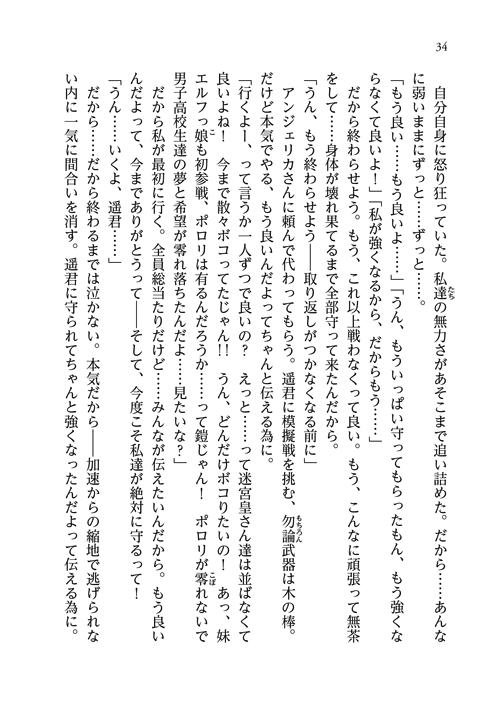 34
自分自身に怒り狂っていた。私達の無力さがあそこまで追い詰めた。だから……あんな
に弱いままにずっと……ずっと……。
「もう良い……もう良いよ……」「うん、もういっぱい守ってもらったもん、もう強くな
らなくて良いよ！」「私が強くなるから、だからもう……」
だから終わらせよう。もう、これ以上戦わなくって良い。もう、こんなに頑張って無茶
をして――身体が壊れ果てるまで全部守って来たんだから。
「うん、もう終わらせよう――取り返しがつかなくなる前に」
アンジェリカさんに頼んで代わってもらう。遥君に模擬戦を挑む、勿論武器は木の棒。
だけど本気でやる、もう良いんだよってちゃんと伝える為に。
「行くよー、って言うか一人ずつで良いの？　えっと……って迷宮皇さん達は並ばなくて
良いよね！　今まで散々ボコってたじゃん!!　うん、どんだけボコりたいの！　あっ、妹
エルフっ娘も初参戦、ポロリは有るんだろうか……って鎧じゃん！　ポロリが零れないで
男子高校生達の夢と希望が零れ落ちたんだよ……見たいな？」
だから私が最初に行く。全員総当たりだけど……みんなが伝えたいんだから。もう良い
んだよって、今までありがとうって――そして、今度こそ私達が絶対に守るって！
「うん……いくよ、遥君……」
だから……だから終わるまでは泣かない。本気だから――加速からの縮地で逃げられな
い内に一気に間合いを消す。遥君に守られてちゃんと強くなったんだよって伝える為に。